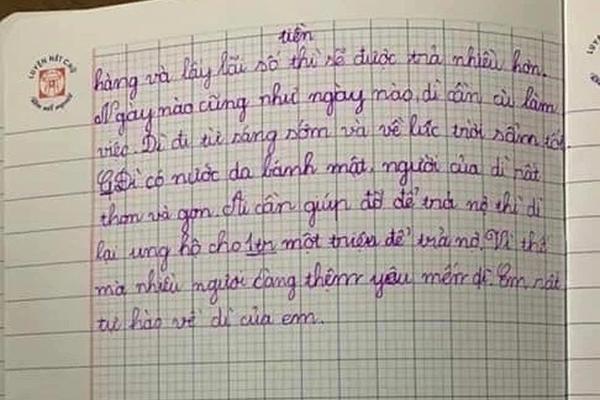 tiền
LUYỆN NẾT CHỮ
Rèn nết người
hàng và lấy lãi số thì sẽ được trả nhiều hơn.
Ngày nào cũng như ngày nào, dì cần cù làm
việc. Dì đi từ sáng sớm và về lúc trời sẩm tối.
Dì có nước da bánh mật, người của dì rất
thon và gọn. Ai cần giúp đỡ để trả nợ thì dì
lại ung hộ cho 1tr một triệu để trả nợ. Vì thế
mà nhiều người càng thêm yêu mến dì. Em rất
tự hào về dì của em.